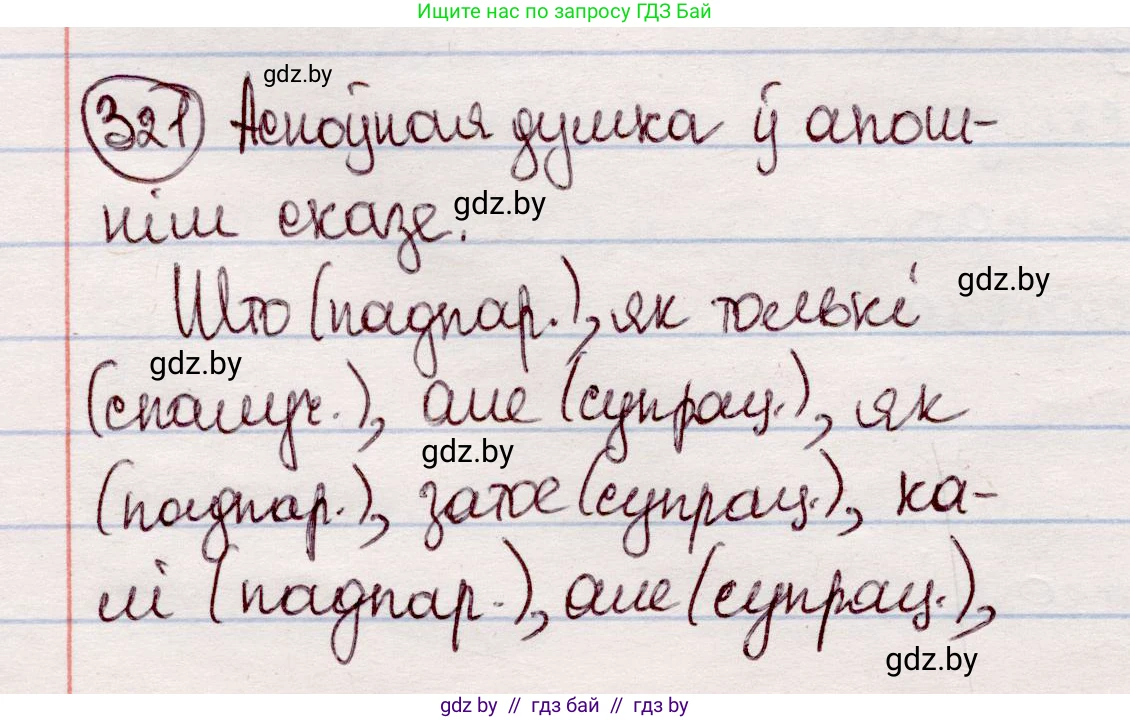 Ищите нас по запросу ГДЗ Бай
gdz.by
321 Асноўная думка ў апош-
нім сказе.
gdz.by
Што (падпар.), як толькі
gdz.by
gdz.by
(спалуч.), але (супрац.), як
gdz.by
(падпар.), затое (супрац.), ка-
лі (падпар.), але (супрац.),
gdz.by
gdz.by // гдз бай // гдз by